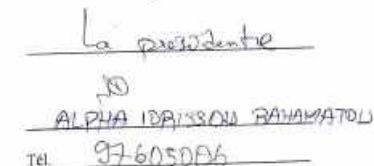 La présidente
ALPHA IDRISSOU RAHAMATOU
TEL. 97-605086